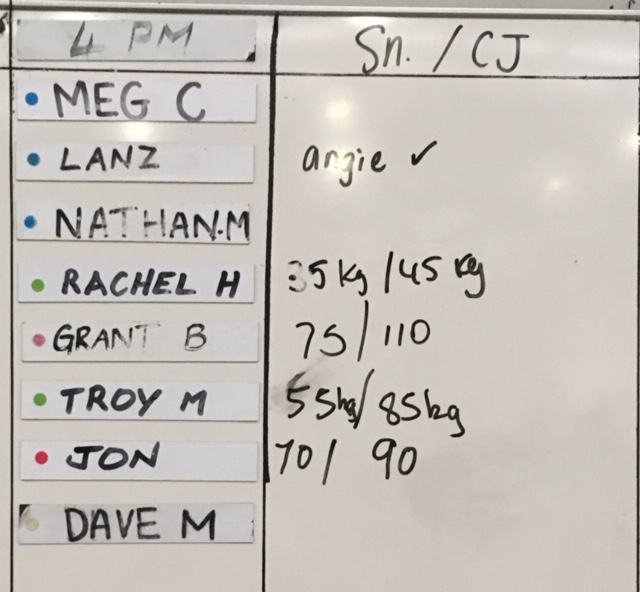 4 PM Sn. / CJ
MEG C
LANZ angie ✓
NATHAN.M
RACHEL H 35 kg / 45 kg
GRANT B 75 / 110
TROY M 55kg / 85kg
JON 70 / 90
DAVE M